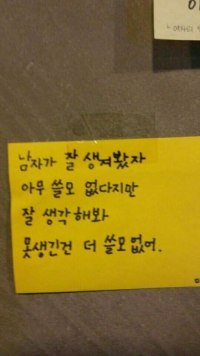 남자가 잘 생겨봤자
아무 쓸모 없다지만
잘 생각해봐
못생긴건 더 쓸모없어.